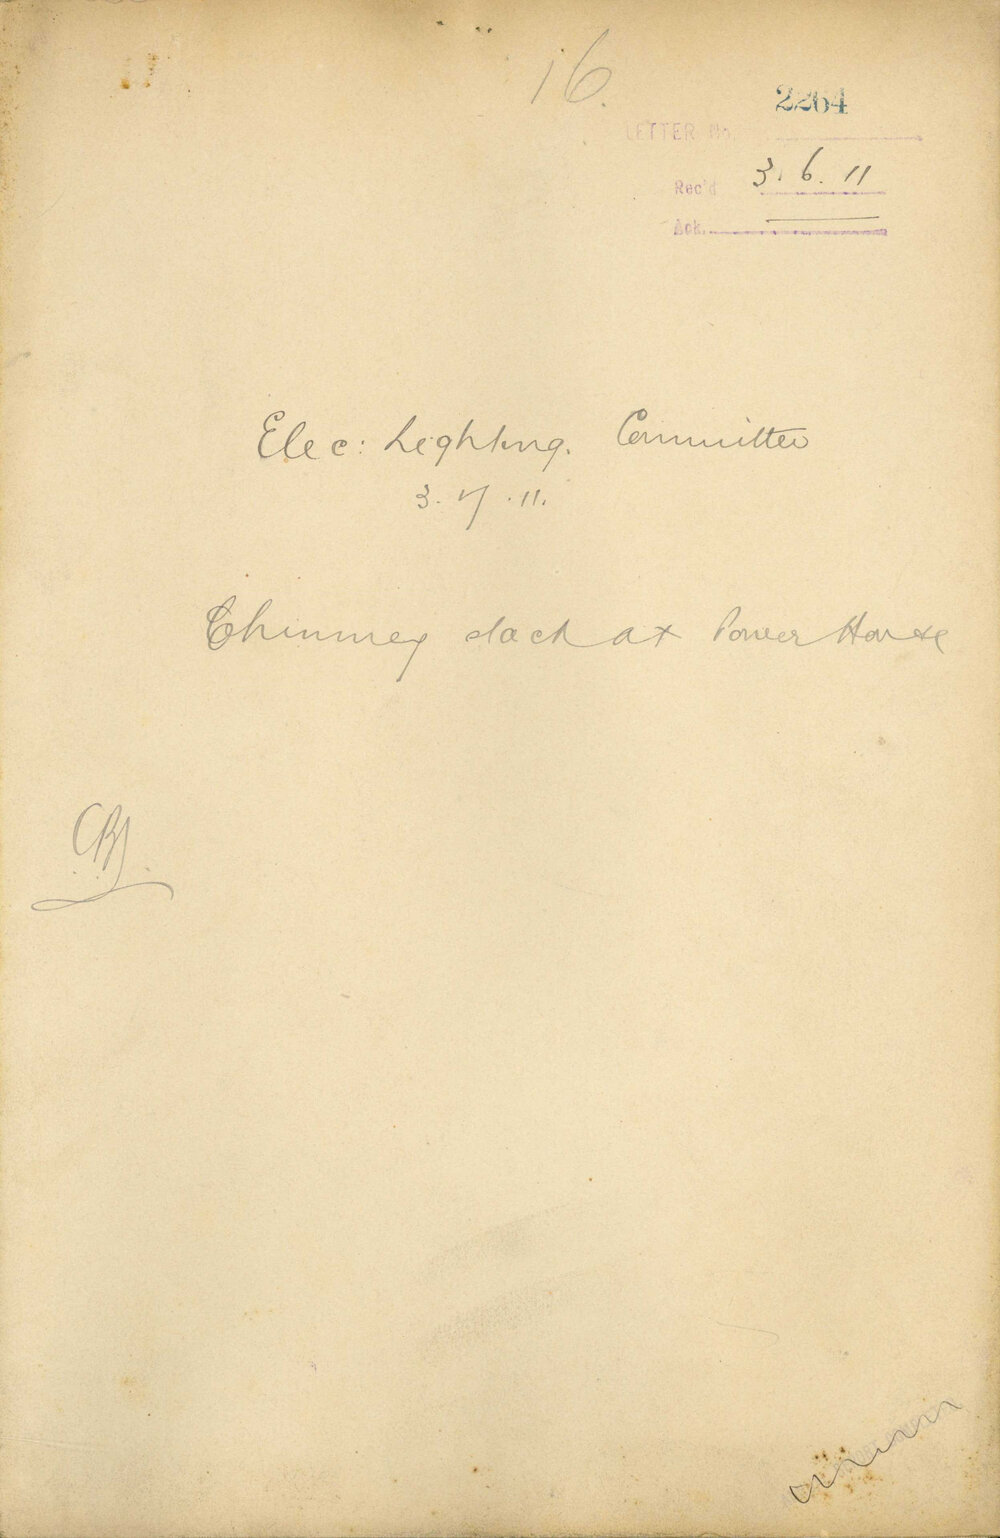 16.
2264
LETTER No.
Rec'd 3. 6. 11
Ack.
Elec: Lighting. Committee
3. 7. 11.
Chimney stack at Power House